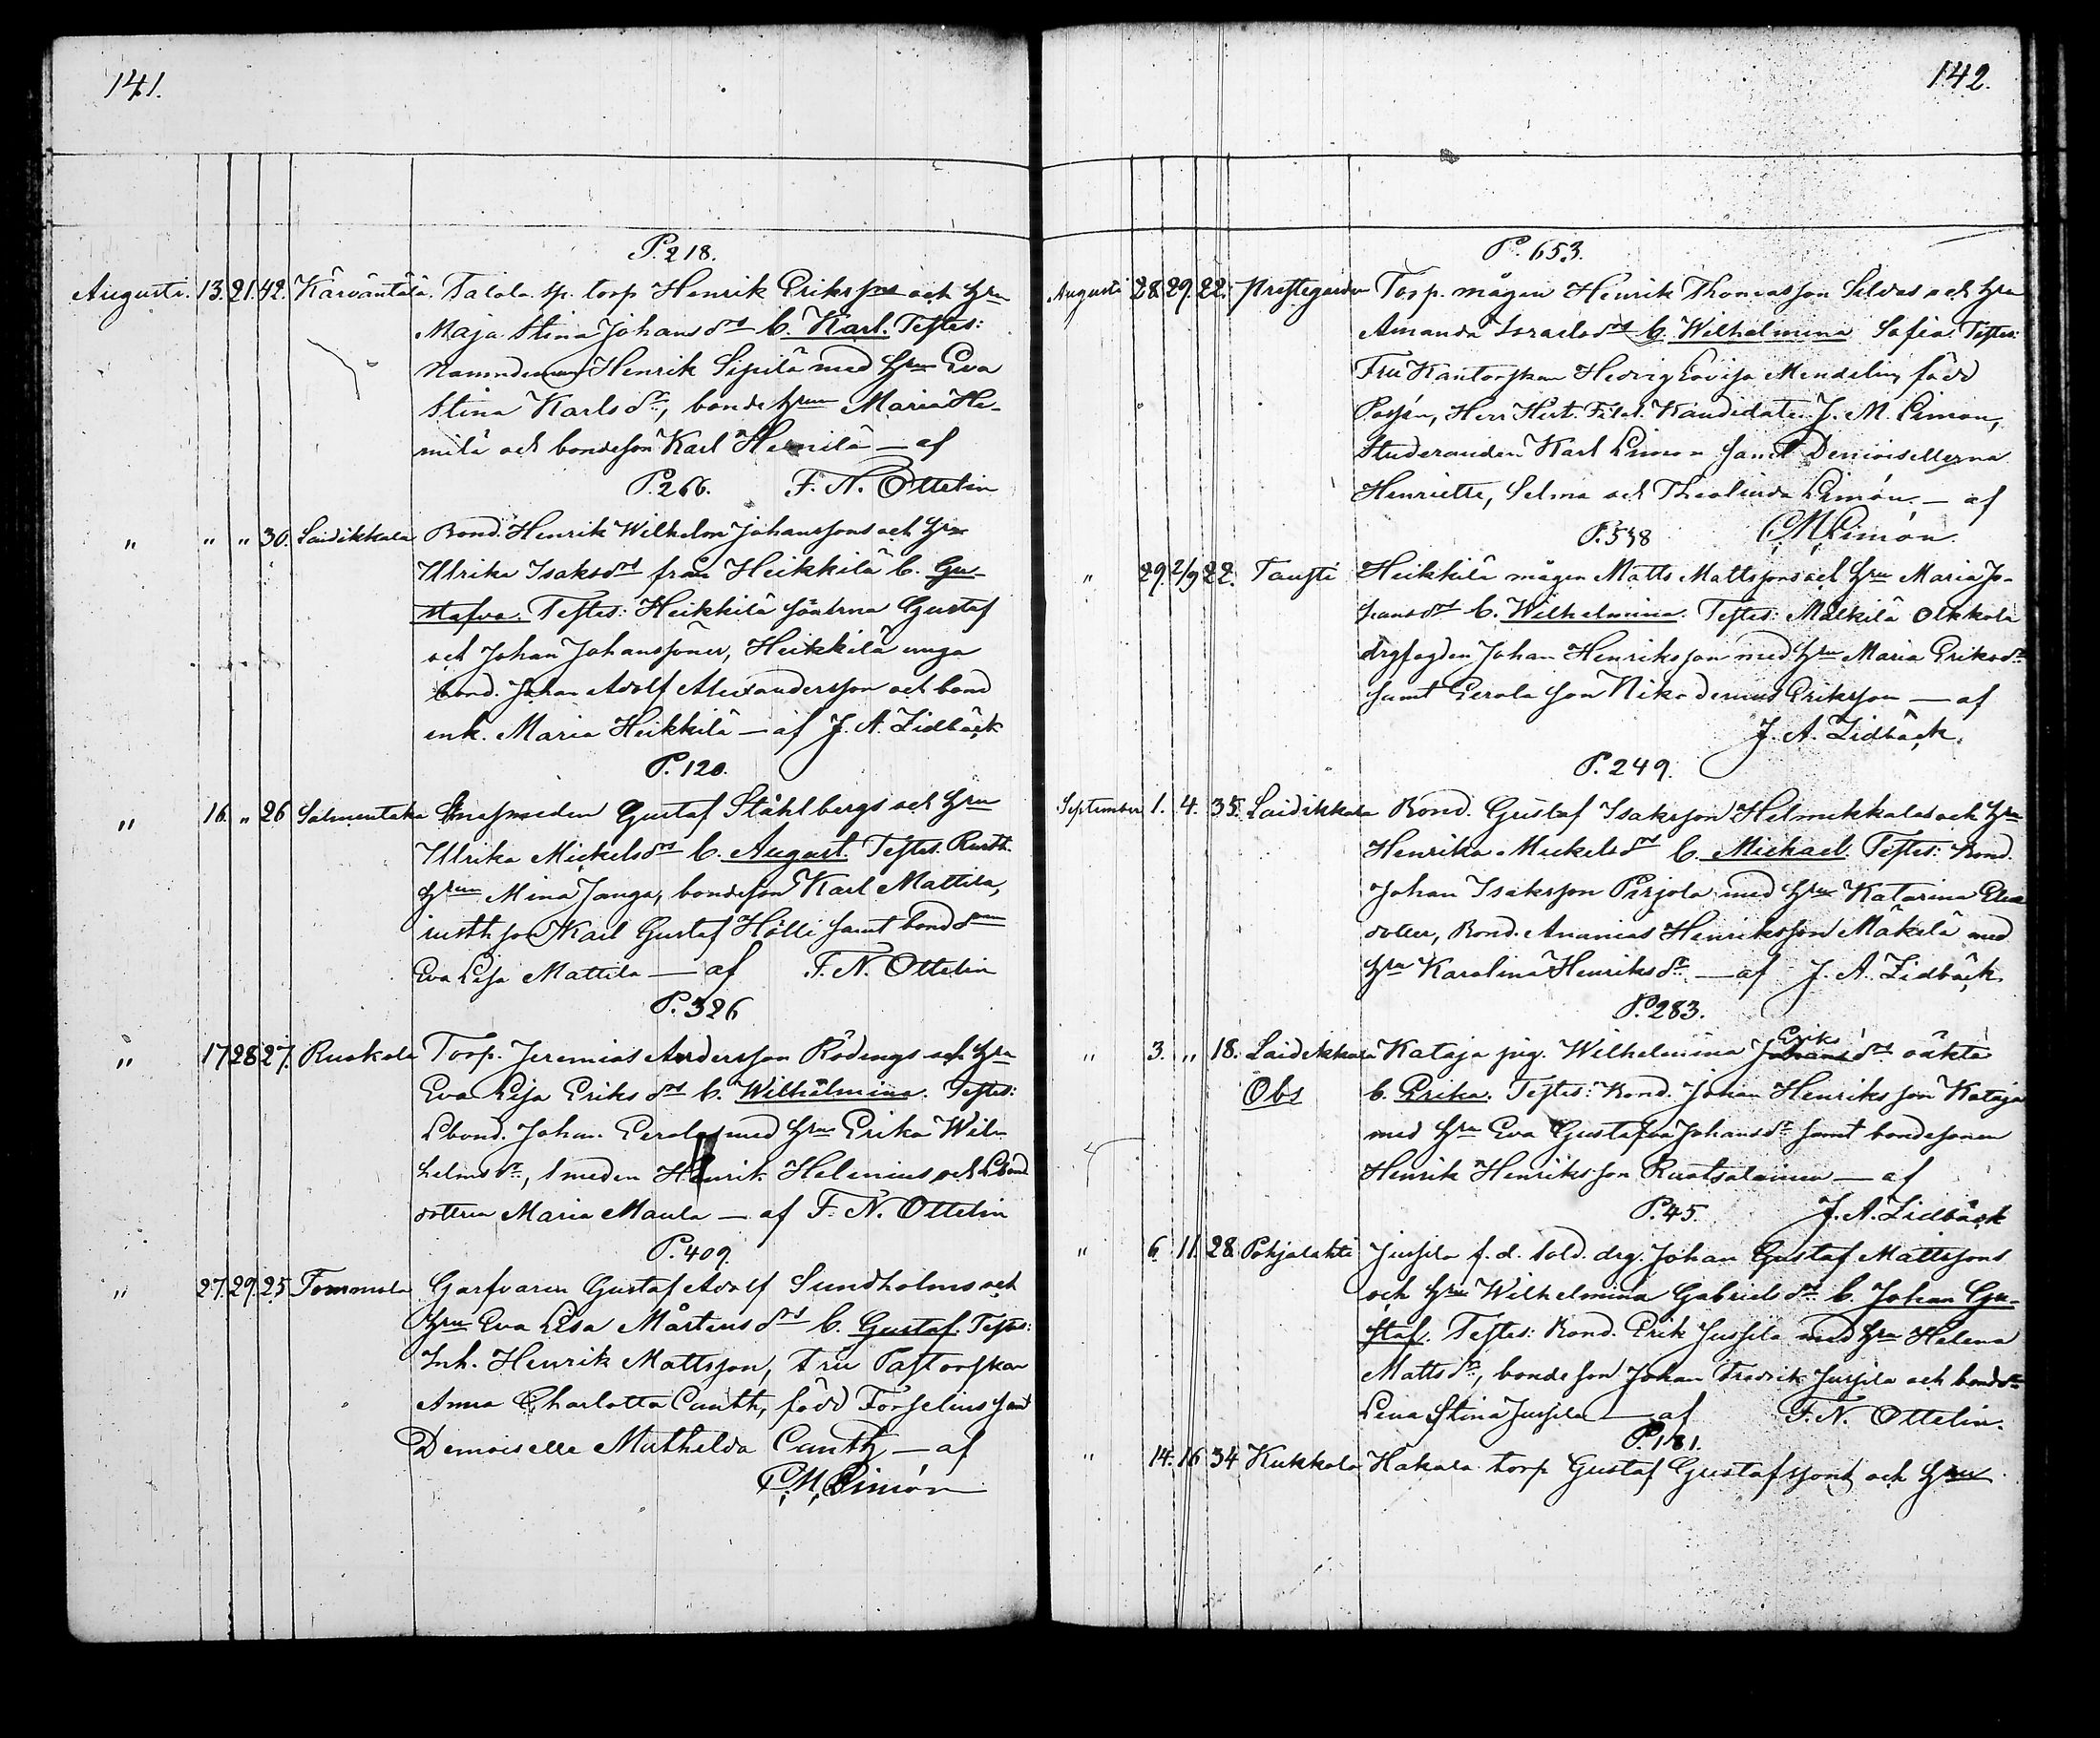 141.
P. 218.
Augusti. 13. 21. 42. Kärväntälä. Talola sp. torp Henrik Erikssons och hru
Maja Stina Johansdrs b. Karl. Testes:
Nämndeman Henrik Sipilä med hru Eva
Stina Karlsdr, bondehrun Maria He-
milä och bondeson Karl Hemilä — af
P. 266. F. N. Ottelin
" " " 30. Laidikkala Bond. Henrik Wilhelm Johanssons och hru
Ulrika Isaksdrs från Heikkilä b. Gu-
stafva. Testes: Heikkilä sönerna Gustaf
och Johan Johanssöner, Heikkilä unga
bond. Johan Adolf Alexandersson och bond
enk. Maria Heikkilä — af J. A. Lidbäck
P. 120.
" 16. " 26 Salmentaka Gustaf Ståhlbergs och hru
Ulrika Mickelsdrs b. August. Testes. Rusth.
hrun Mina Janga, bondeson Karl Mattila,
rusthson Karl Gustaf Hölli samt bond
Eva Lisa Mattila — af F. N. Ottelin
P. 326
" 17 28 27. Ruokola Torp. Jeremias Andersson Rödings och hru
Eva Lisa Eriksdrs b. Wilhelmina. Testes:
Lbond. Johan Perola med hru Erika Wil-
helmsdr, smeden Henrik Helenius och Lbond
dottren Maria Maula — af F. N. Ottelin
P. 409.
" 27. 29. 25 Tommola Garfvaren Gustaf Adolf Sundholms och
hru Eva Lisa Mårtensdrs b. Gustaf. Testes:
Inh. Henrik Mattsson, Fru Pastorskan
Anna Charlotta Canth, född Forselius samt
Demoiselle Mathilda Canth — af
C. M. Limón
142.
P. 653.
Augusti 28. 29. 22. Prestegården Torp. mågen Henrik Thomasson Selvas och hru
Amanda Israelsdrs b. Wilhelmina Sofia. Testes:
Fru Kantorskan Hedvig Lovisa Mendelin, född
Herr Hist. Filol. Kandidaten J. M. Limon,
Studeranden Karl Limon samt Demoisellerna
Henriette, Selma och Theolinda Limón — af
P. 538 C. M. Limón.
" 29. 2/9 22. Tausti Heikkilä mågen Matts Mattssons och hru Maria Jo-
hansdrs b. Wilhelmina. Testes: Mälkilä Olkkola
drgfogden Johan Henriksson med hru Maria Eriksdr
samt Perola son Nikodemus Eriksson — af
J. A. Lidbäck.
P. 249.
September 1. 4. 35. Laidikkala Bond. Gustaf Isaksson Helmikkalas och hru
Henrika Mickelsdrs b. Michael. Testes: Bond.
Johan Isaksson Pirjola med hru Katarina
dotter, Bond. Ananias Henriksson Mäkilä med
hru Karolina Henriksdr — af J. A. Lidbäck
P. 283.
Eriks
" 3. " 18. Laidikkala Kataja pig. Wilhelmina Johansdrs oäkta
Obs b. Erika. Testes: Bond. Johan Henriksson Kataja
med hru Eva Gustafva Johansdr samt bondesonen
Henrik Henriksson Ruotsalainen — af
P. 45. J. A. Lidbäck
" 6. 11. 28. Pohjalahti Jussila f. d. sold. drg. Johan Gustaf Mattssons
och hru Wilhelmina Gabrielsdrs b. Johan Gu-
staf. Testes: Bond. Erik Jussila med hru Helena
Mattsdr, bondeson Johan Fredrik Jussila och bonddr
Lena Stina Jussila — af F. N. Ottelin.
P. 181.
" 14. 16 34 Kukkola Hakala torp Gustaf Gustafssons och hru